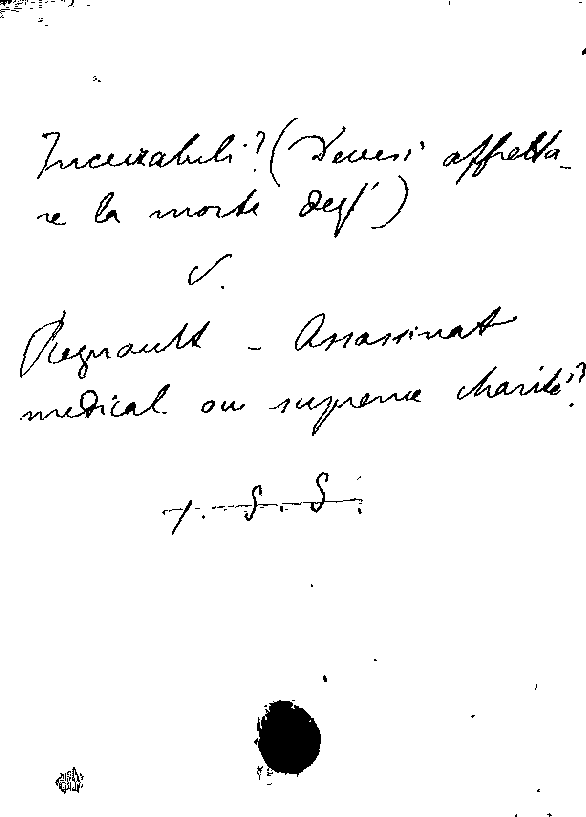 Incurabili? (Devesi affretta-
re la morte degl')
V.
Regnault - Assassinat
medical ou supreme charité?